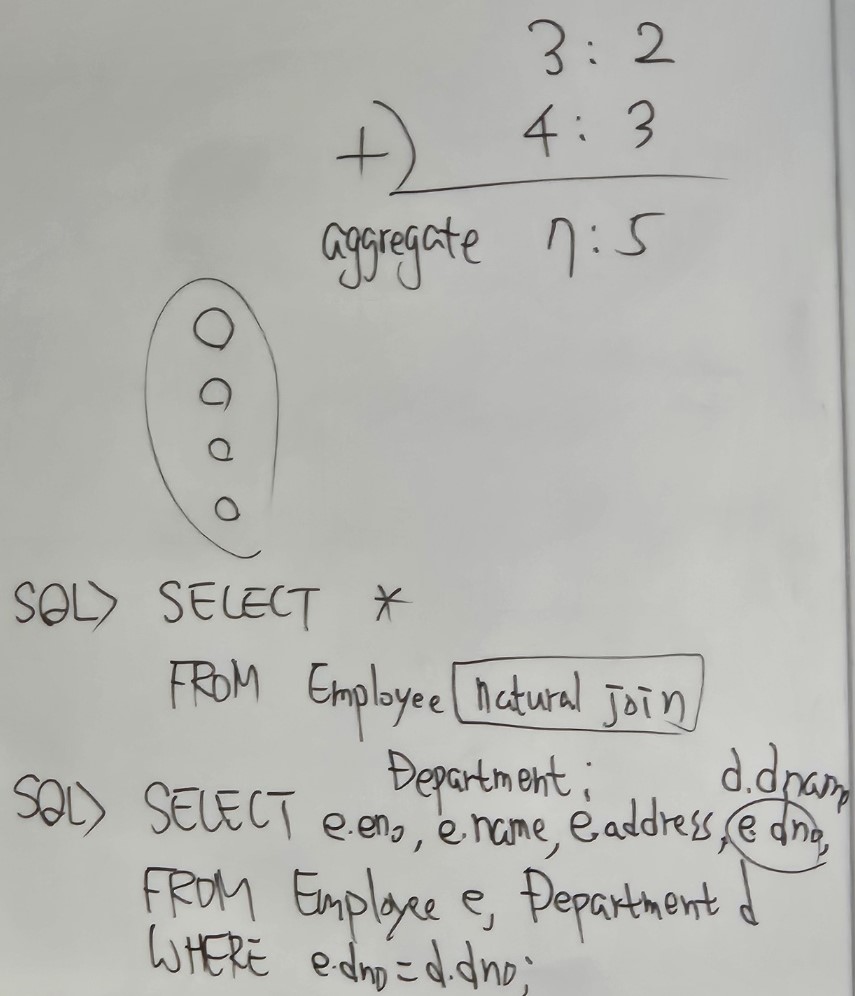 3 : 2
+) 4 : 3
aggregate 7 : 5
SQL> SELECT *
FROM Employee natural join
Department;
SQL> SELECT e.eno, e.name, e.address, e.dno,
d.dnam
FROM Employee e, Department d
WHERE e.dno = d.dno;